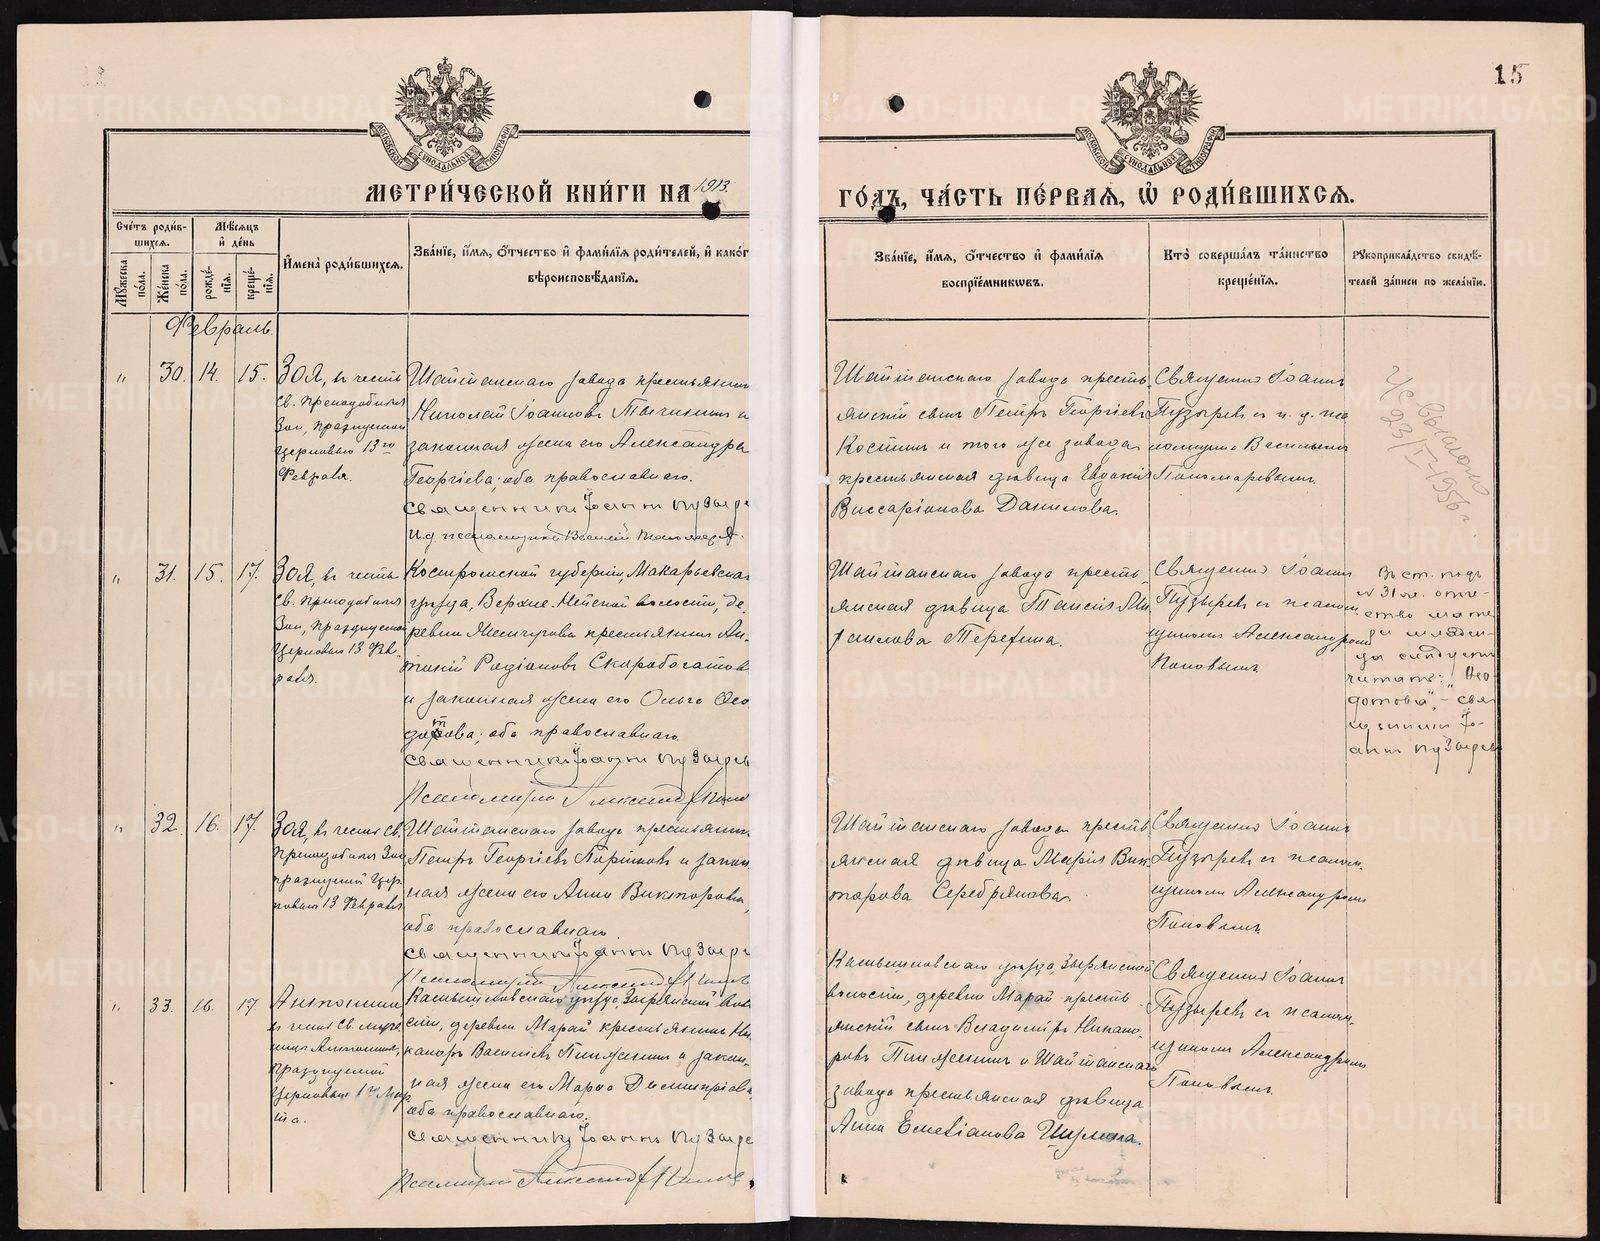 15
МОСКОВСКОЙ СѴНОДАЛЬНОЙ ТИПОГРАФІИ
МОСКОВСКОЙ СѴНОДАЛЬНОЙ ТИПОГРАФІИ
МЕТРИ́ЧЕСКОЙ КНИ́ГИ НА 1913.
ГО́ДЪ, ЧА́СТЬ ПЕ́РВАѦ, Ѽ РОДИ́ВШИХСѦ.
Сче́тъ роди́в-
шихсѧ.
Мѣ́сѧцъ
и҆ де́нь
Мꙋ́жеска по́ла.
Же́нска по́ла.
рожде́-нїѧ.
креще́-нїѧ.
И҆мена̀ роди́вшихсѧ.
Зва́нїе, и҆́мѧ, ѻ҆́тчество и҆ фами́лїѧ роди́телей, и҆ како́г
вѣроисповѣ́данїѧ.
Зва́нїе, и҆́мѧ, ѻ҆́тчество и҆ фами́лїѧ
воспрїе́мникѡвъ.
Кто̀ соверша́лъ та́инство
креще́нїѧ.
Рꙋкоприкла́дство свидѣ́-
телей за́писи по жела́нїю.
Февраль.
" 30. 14. 15.
Зоя, въ честь
св. преподобныя
Зои, празднуемой
церковью 13го
Февраля.
Шайтанскаго завода крестьянинъ
Николай Іоанновъ
законная жена его Александра
Георгіева; оба православнаго.
Священникъ Іоаннъ Пузыре
И.д. псаломщика Василій
Шайтанскаго завода кресть
янскій сынъ Петръ Георгіевъ
Костинъ и того же завода
крестьянская дѣвица Евдокія
Виссаріонова Данилова.
Священникъ Іоаннъ
Пузыревъ съ и. д. пса
ломщика Василіемъ
Пономаревымъ.
ч/с выслано
23/I-1956 г
" 31. 15. 17.
Зоя, въ честь
св. преподобныя
Зои, празднуемой
церковью 13 Фев-
раля.
Костромской губерніи, Макарьевска
уѣзда, Верхне-Нейской волости, де-
ревни крестьянинъ Ан-
тоній Родіоновъ Скоробогатовъ
и законная жена его Ольга Ѳео
дотова; оба православнаго.
Священникъ Іоаннъ Пузырев
Псаломщикъ Александръ Попов
Шайтанскаго завода кресть-
янская дѣвица Таисія Ми
хаилова Терехина.
Священникъ Іоаннъ
Пузыревъ съ псалом-
щикомъ Александромъ
Поповымъ.
Въ ст. подъ
№ 31 ж. отче-
ство мате-
ри младен-
ца слѣдуетъ
читать: „Ѳео-
дотова", – свя-
щенникъ Іо-
аннъ Пузыревъ
" 32. 16. 17.
Зоя, въ честь св.
преподобныя Зои
празднуемой цер-
ковью 13 Февраля
Шайтанскаго завода крестьянинъ
Петръ Георгіевъ и закон-
ная жена его Анна Викторова,
оба православнаго.
Священникъ Іоаннъ Пузырев
Псаломщикъ Александръ Попов
Шайтанскаго завода кресть
янская дѣвица Марія Вик
торова Серебрякова.
Священникъ Іоаннъ
Пузыревъ съ псалом-
щикомъ Александромъ
Поповымъ.
" 33. 16. 17
Антонина,
въ честь св. муче-
ницы Антонины,
празднуемой
церковью 1го Мар
та.
Камышловскаго уѣзда, Зырянской воло
сти, деревни Марай крестьянинъ Ни
каноръ Васильевъ Пинженинъ и закон-
ная жена его Марѳа Димитріева,
оба православнаго.
Священникъ Іоаннъ Пузыре
Псаломщикъ Александръ Попов
Камышловскаго уѣзда, Зырянской
волости, деревни Марай кресть-
янскій сынъ Владиміръ Никано-
ровъ Пинженинъ и Шайтанскаго
завода крестьянская дѣвица
Анна Емеліанова
Священникъ Іоаннъ
Пузыревъ съ псалом-
щикомъ Александромъ
Поповымъ.
METRIKI.GASO-URAL.RU